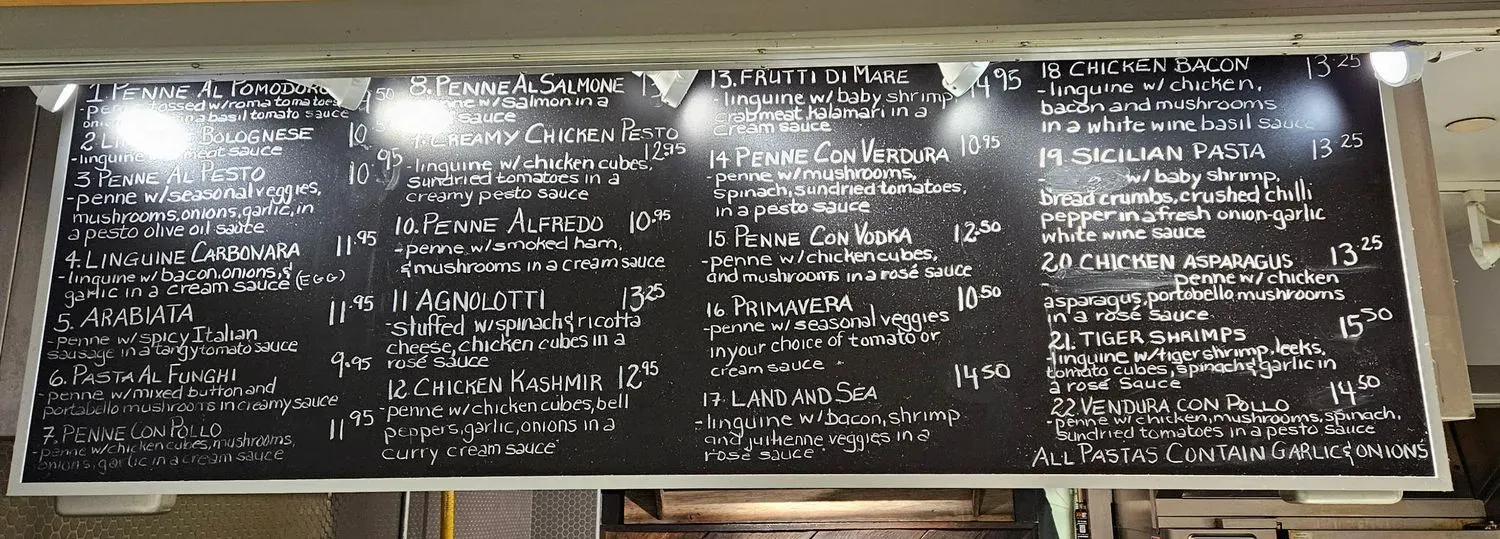 1. PENNE AL POMODORO 50
- penne tossed w/roma tomatoes
in a basil tomato sauce
2. BOLOGNESE 10
- linguine meat sauce
3 PENNE AL PESTO 10 95
- penne w/seasonal veggies,
mushrooms, onions, garlic, in
a pesto olive oil saute
4. LINGUINE CARBONARA 11.95
- linguine w/bacon, onions, &
garlic in a cream sauce (EGG)
5. ARABIATA 11.95
- penne w/spicy Italian
sausage in a tangy tomato sauce
6. PASTA AL FUNGHI 9.95
- penne w/mixed button and
portabello mushrooms in creamy sauce
7. PENNE CON POLLO 11.95
- penne w/chicken cubes, mushrooms,
onions, garlic in a cream sauce
8. PENNE AL SALMONE
w/salmon in a
sauce
CREAMY CHICKEN PESTO
12.95
- linguine w/chicken cubes,
sundried tomatoes in a
creamy pesto sauce
10. PENNE ALFREDO 10.95
- penne w/smoked ham,
& mushrooms in a cream sauce
11 AGNOLOTTI 13.25
- stuffed w/spinach & ricotta
cheese, chicken cubes in a
rosé sauce
12. CHICKEN KASHMIR 12.95
- penne w/chicken cubes, bell
peppers, garlic, onions in a
curry cream sauce
13. FRUTTI DI MARE 14.95
- linguine w/baby shrimp
crabmeat, kalamari in a
cream sauce
14 PENNE CON VERDURA 10.95
- penne w/mushrooms,
spinach, sundried tomatoes,
in a pesto sauce
15. PENNE CON VODKA 12.50
- penne w/chicken cubes,
and mushrooms in a rosé sauce
16 PRIMAVERA 10.50
- penne w/seasonal veggies
in your choice of tomato or
cream sauce
17. LAND AND SEA 14.50
- linguine w/Bacon, shrimp
and julhenne veggies in a
rosé sauce
18 CHICKEN BACON 13.25
- linguine w/chicken,
bacon and mushrooms
in a white wine basil sauce
19. SICILIAN PASTA 13.25
- w/baby shrimp,
bread crumbs, crushed chilli
pepper in a fresh onion-garlic
white wine sauce
20 CHICKEN ASPARAGUS 13.25
penne w/chicken
asparagus, portobello mushrooms
in a rosé sauce
21. TIGER SHRIMPS 15.50
- linguine w/tiger shrimp, leeks,
tomato cubes, spinach & garlic in
a rosé sauce
22. VENDURA CON POLLO 14.50
- penne w/chicken, mushrooms, spinach,
sundried tomatoes in a pesto sauce
ALL PASTAS CONTAIN GARLIC & ONIONS